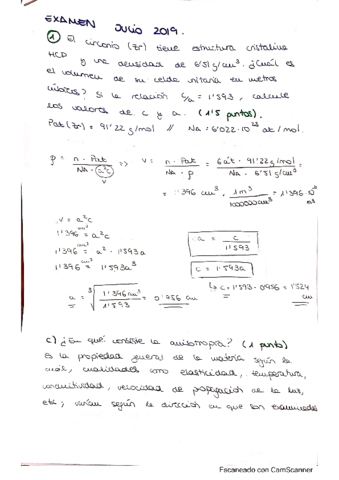 EXAMEN JULIO 2019.
① El circonio (Zr) tiene estructura cristalina
HCP y una densidad de 6'51 g/cm³. ¿Cuál es
el volumen de su celda unitaria en metros
cúbicos? Si la relación c/a = 1'593, calcule
los valores de c y a. (1'5 puntos).
Pat (Zr) = 91'22 g/mol // NA = 6'022·10²³ at/mol.
ρ = n · Pat / NA · (a²c) V => V = n · Pat / NA · ρ = 6 at · 91'22 g/mol / NA · 6'51 g/cm³ =
= 1'396 cm³ · 1 m³ / 1000000 cm³ = 1'396·10
V = a²c
1'396 cm³ = a²c
1'396 cm³ = a² · 1'593a
1'396 cm³ = 1'593a³
a = ∛ 1'396 cm³ / 1'593 = 0'956 cm
a = c / 1'593
c = 1'593a
↳ c = 1'593 · 0'956 = 1'524
cm
c) ¿En qué consiste la anisotropía? (1 punto)
Es la propiedad general de la materia según la
cual, cualidades como elasticidad, temperatura,
conductividad, velocidad de propagación de la luz,
etc; varían según la dirección en que son examinadas
Escaneado con CamScanner